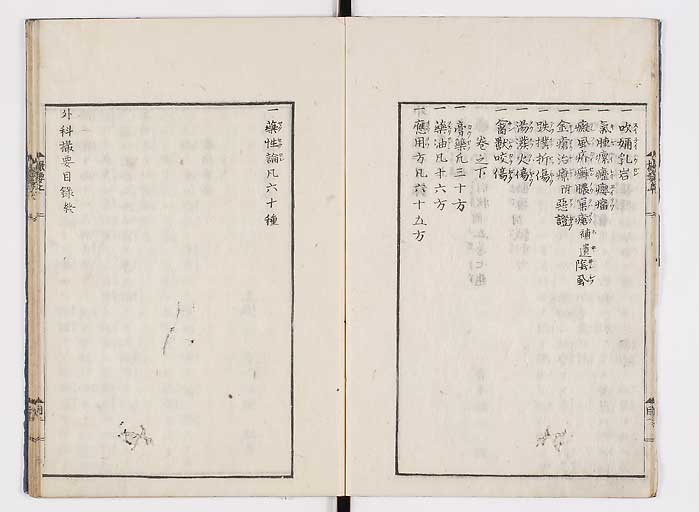 一吹嬭乳岩
一氣腫瘰癧癭瘤
一癜風疥癬臁瘡補遺陰虱
一金瘡治療附惡證
一跌撲折傷
一湯潑火傷
一畜獸咬傷
卷之下
一膏藥凡三十方
一藥油凡十六方
一應用方凡六十五方
一藥性論凡六十種
外科撮要目錄終